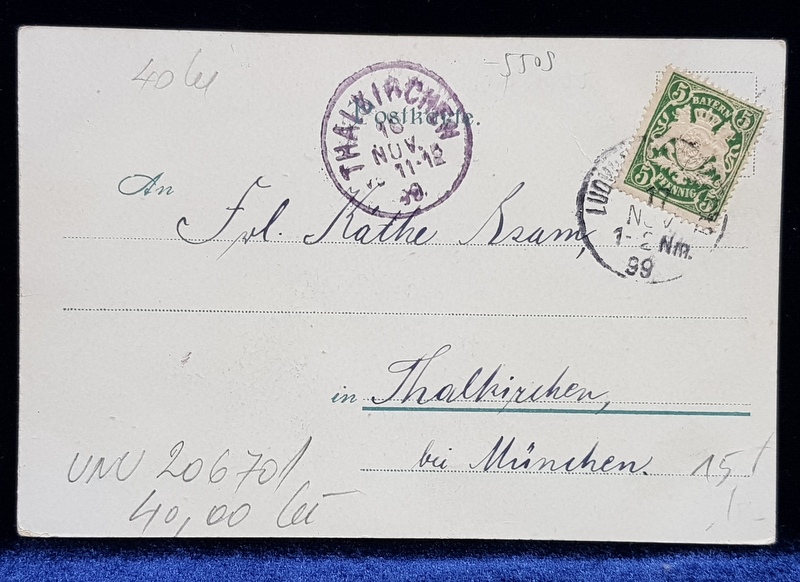 40 lei
-5509
THALKIRCHEN
16
NOV.
11-12
99
Postkarte.
5 BAYERN 5
5 PFENNIG 5
11
NOV
1-2 Nm.
99
An
Frl. Käthe Asam,
in Thalkirchen,
bei München.
15,-
UNU 206701
40,00 lei